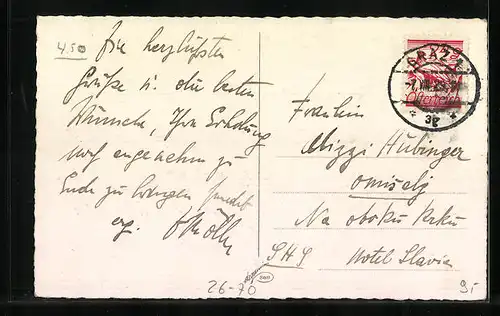 4.50
Die herzlichsten
Grüße u. die besten
Wünsche, Ihre Erholung
noch angenehm zu
Ende zu bringen sendet
GRAZ
Österreich
Fräulein
Mizzi Hubinger
Omišalj
Na otoku Krku
SHS Hotel Slavia
26-70
9.-